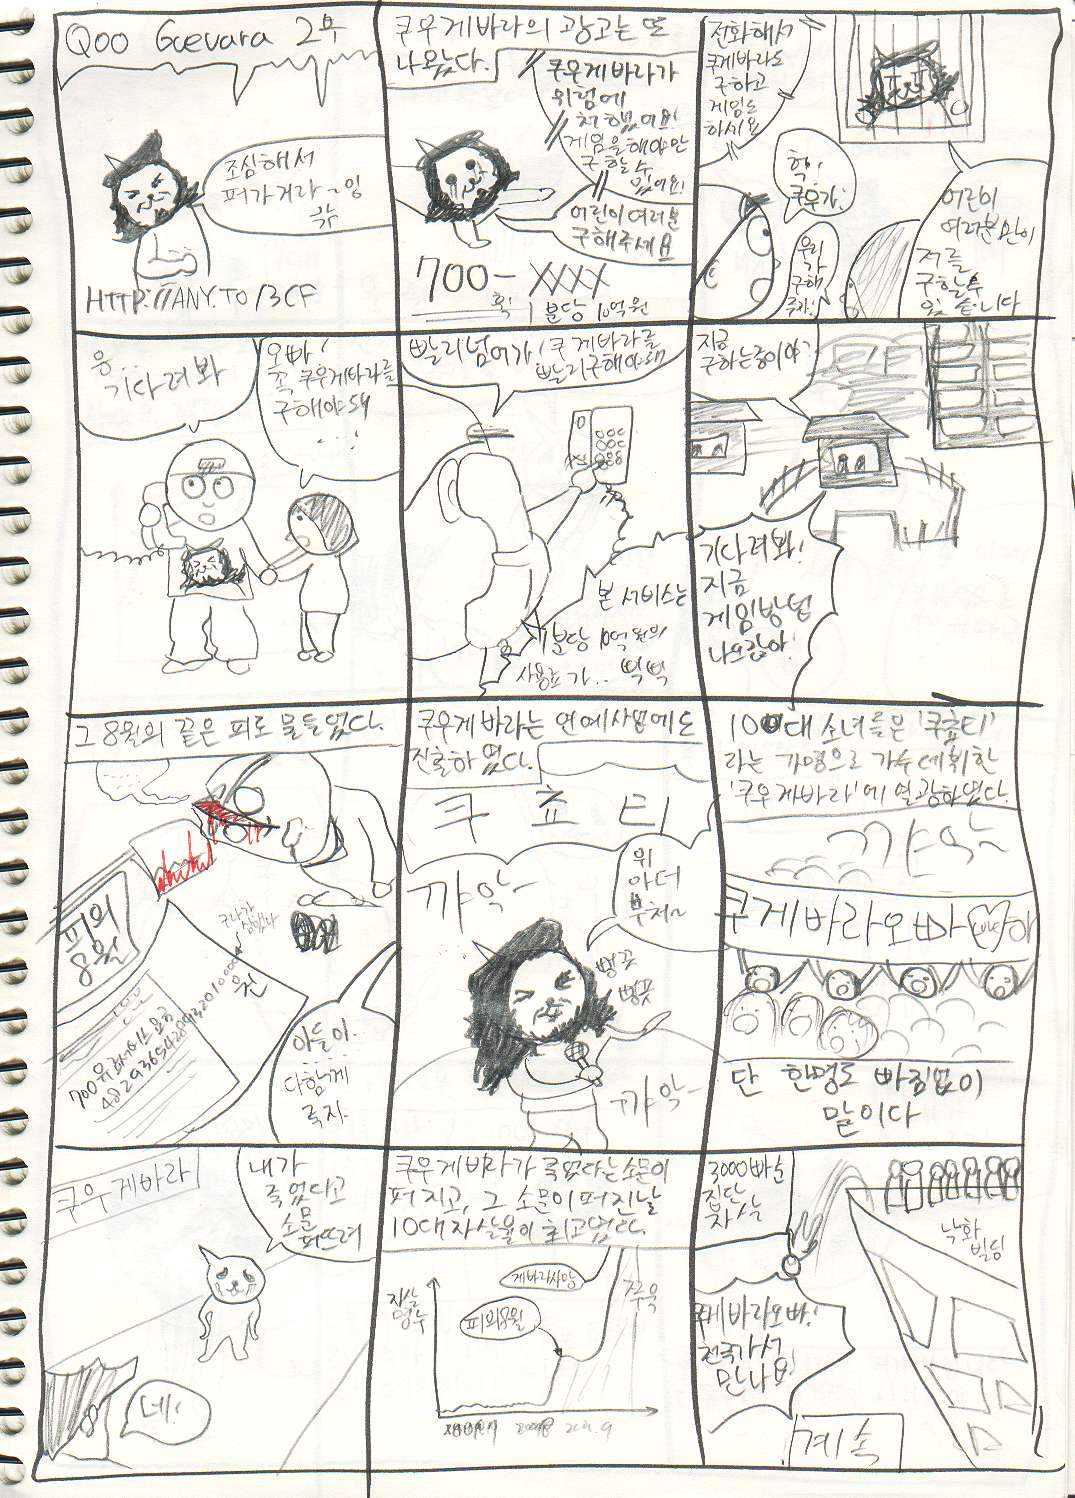 Qoo Guevara 2부
조심해서
퍼가거라~잉
HTTP://ANY.TO/3CF
쿠우게바라의 광고는 또
나왔다.
쿠우게바라가
위험에
처했어요!
게임을해야만
구할수
있어요!
어린이여러분
구해주세요
700-XXXX
1분당 10억원
전화해서
쿠게바라도
구하고
게임도
하세요
헉!
쿠우가!
우리
가
구해
주자!
어린이
여러분만이
저를
구할수
있습니다
응...
기다려봐
오빠!
꼭 쿠우게바라를
구해야돼
...!
빨리넘어가! 쿠게바라를
빨리구해야돼
본 서비스는
1분당 10억원의
사용료가.. 빡빡
지금
구하는중이야?
기다려봐!
지금
게임방법
나오잖아!
그 8월의 끝은 피로 물들었다.
피의
8월
700유료서비스요금
원
아들아..
다함께
죽자.
쿠우게바라는 연예사업에도
진출하였다.
쿠쵸티
꺄악-
위
아더
부처~
벙끗
벙끗
꺄악-
100대 소녀들은 '쿠쵸티'
라는 가명으로 가수데뷔한
'쿠우게바라'에 열광하였다.
꺄악~
쿠게바라오빠♡아
단 한명도 빠짐없이
말이다
쿠우게바라
내가
죽었다고
소문
퍼뜨려
네!
쿠우게바라가 죽었다는소문이
퍼지고, 그 소문이 퍼진날
10대자살율이 최고였다.
자살
명수
게바라사망
피의8월
주욱
3000빠순
집단
자살
낙화
빌딩
쿠게바라오빠!
천국가서
만나요!
계속